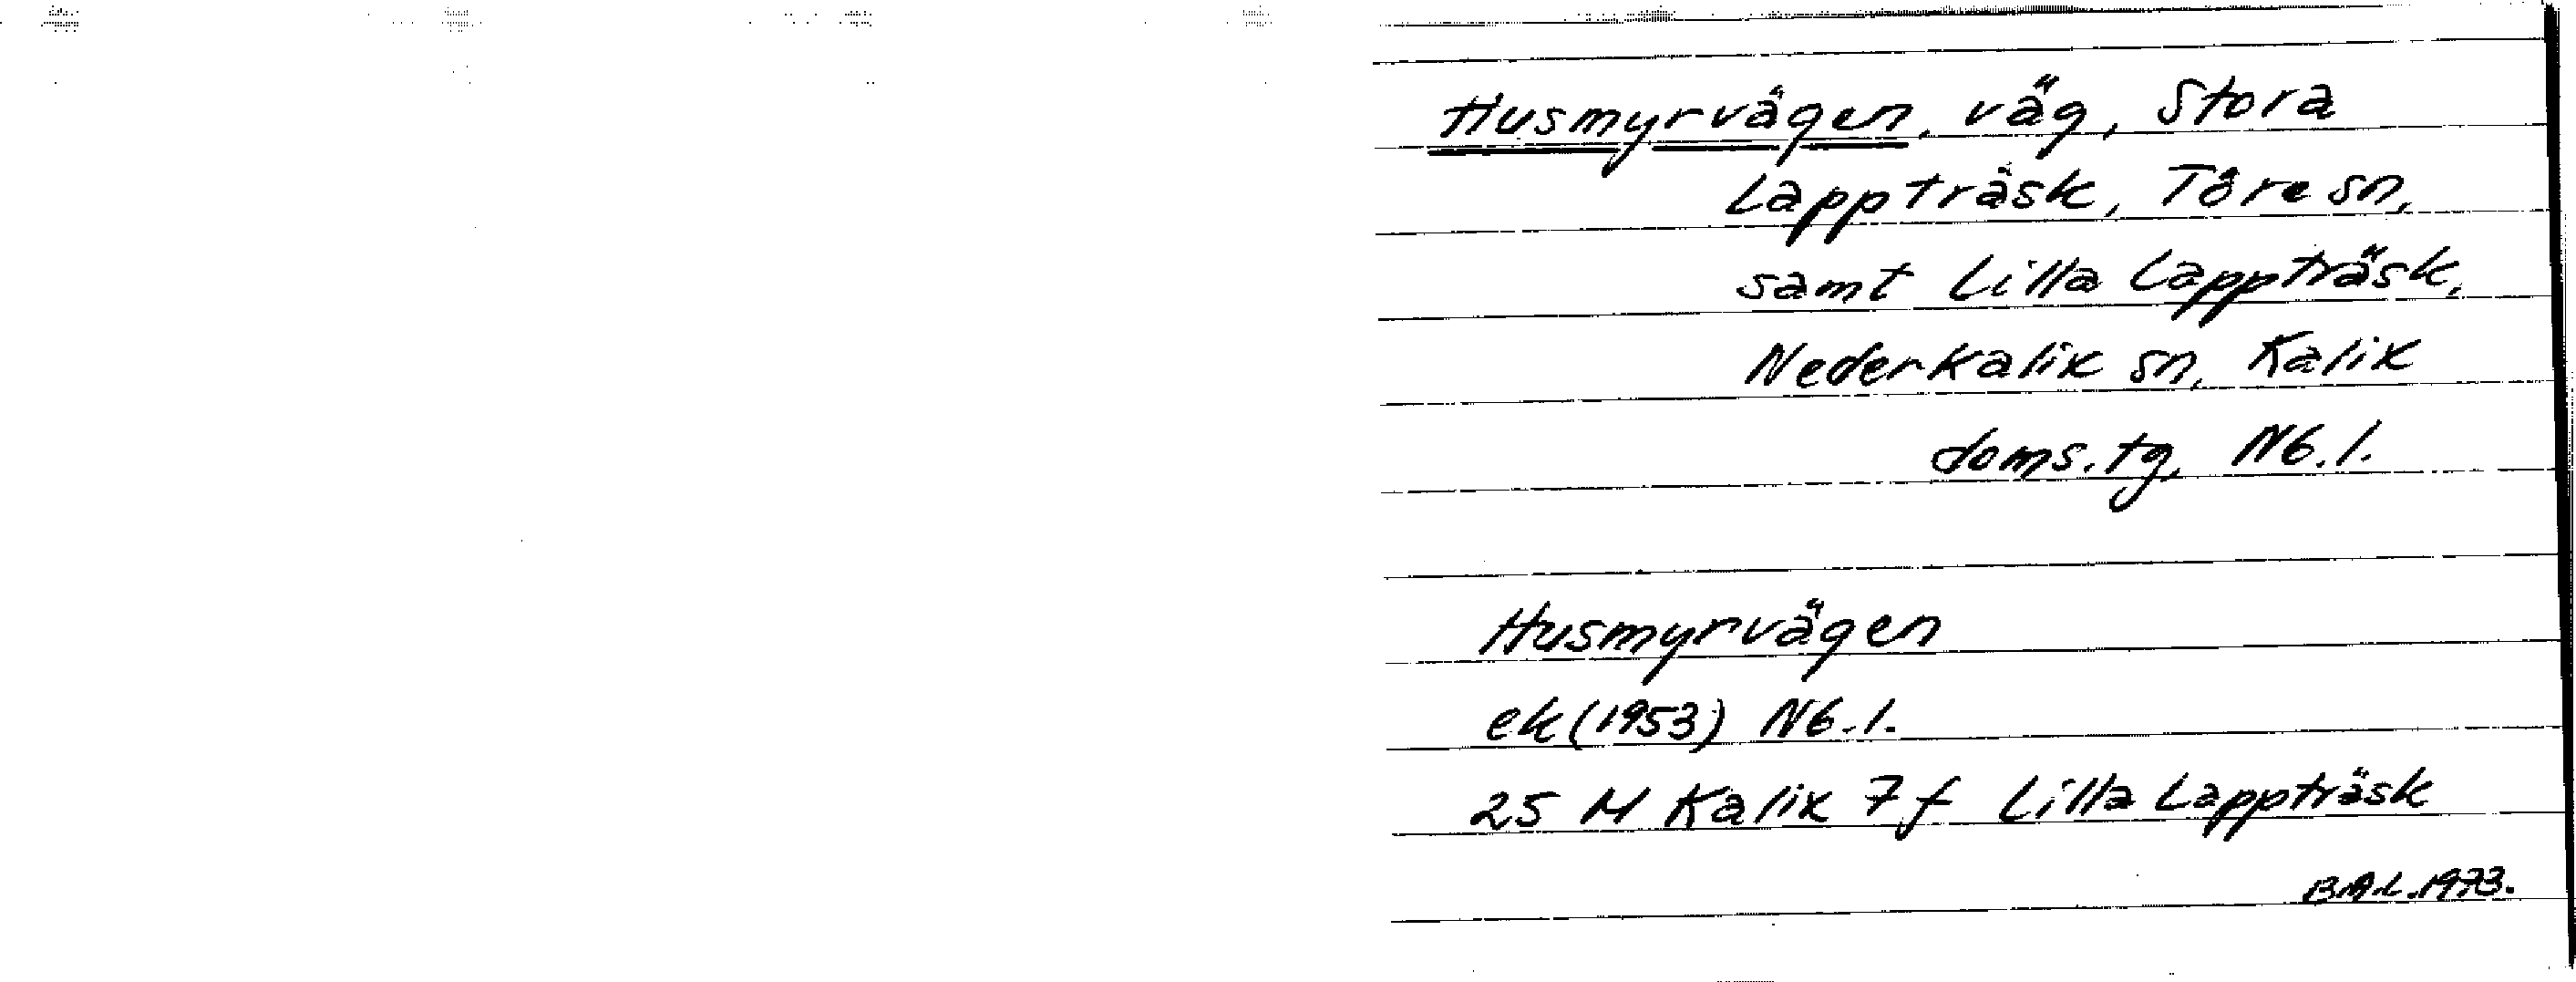 Husmyrvägen, väg, Stora
Lappträsk, Töre sn,
samt Lilla Lappträsk,
Nederkalix sn, Kalix
doms.tg, Nb.l.
Husmyrvägen
ek (1953) Nb.l.
25 M Kalix 7f Lilla Lappträsk
B.A.L. 1973.